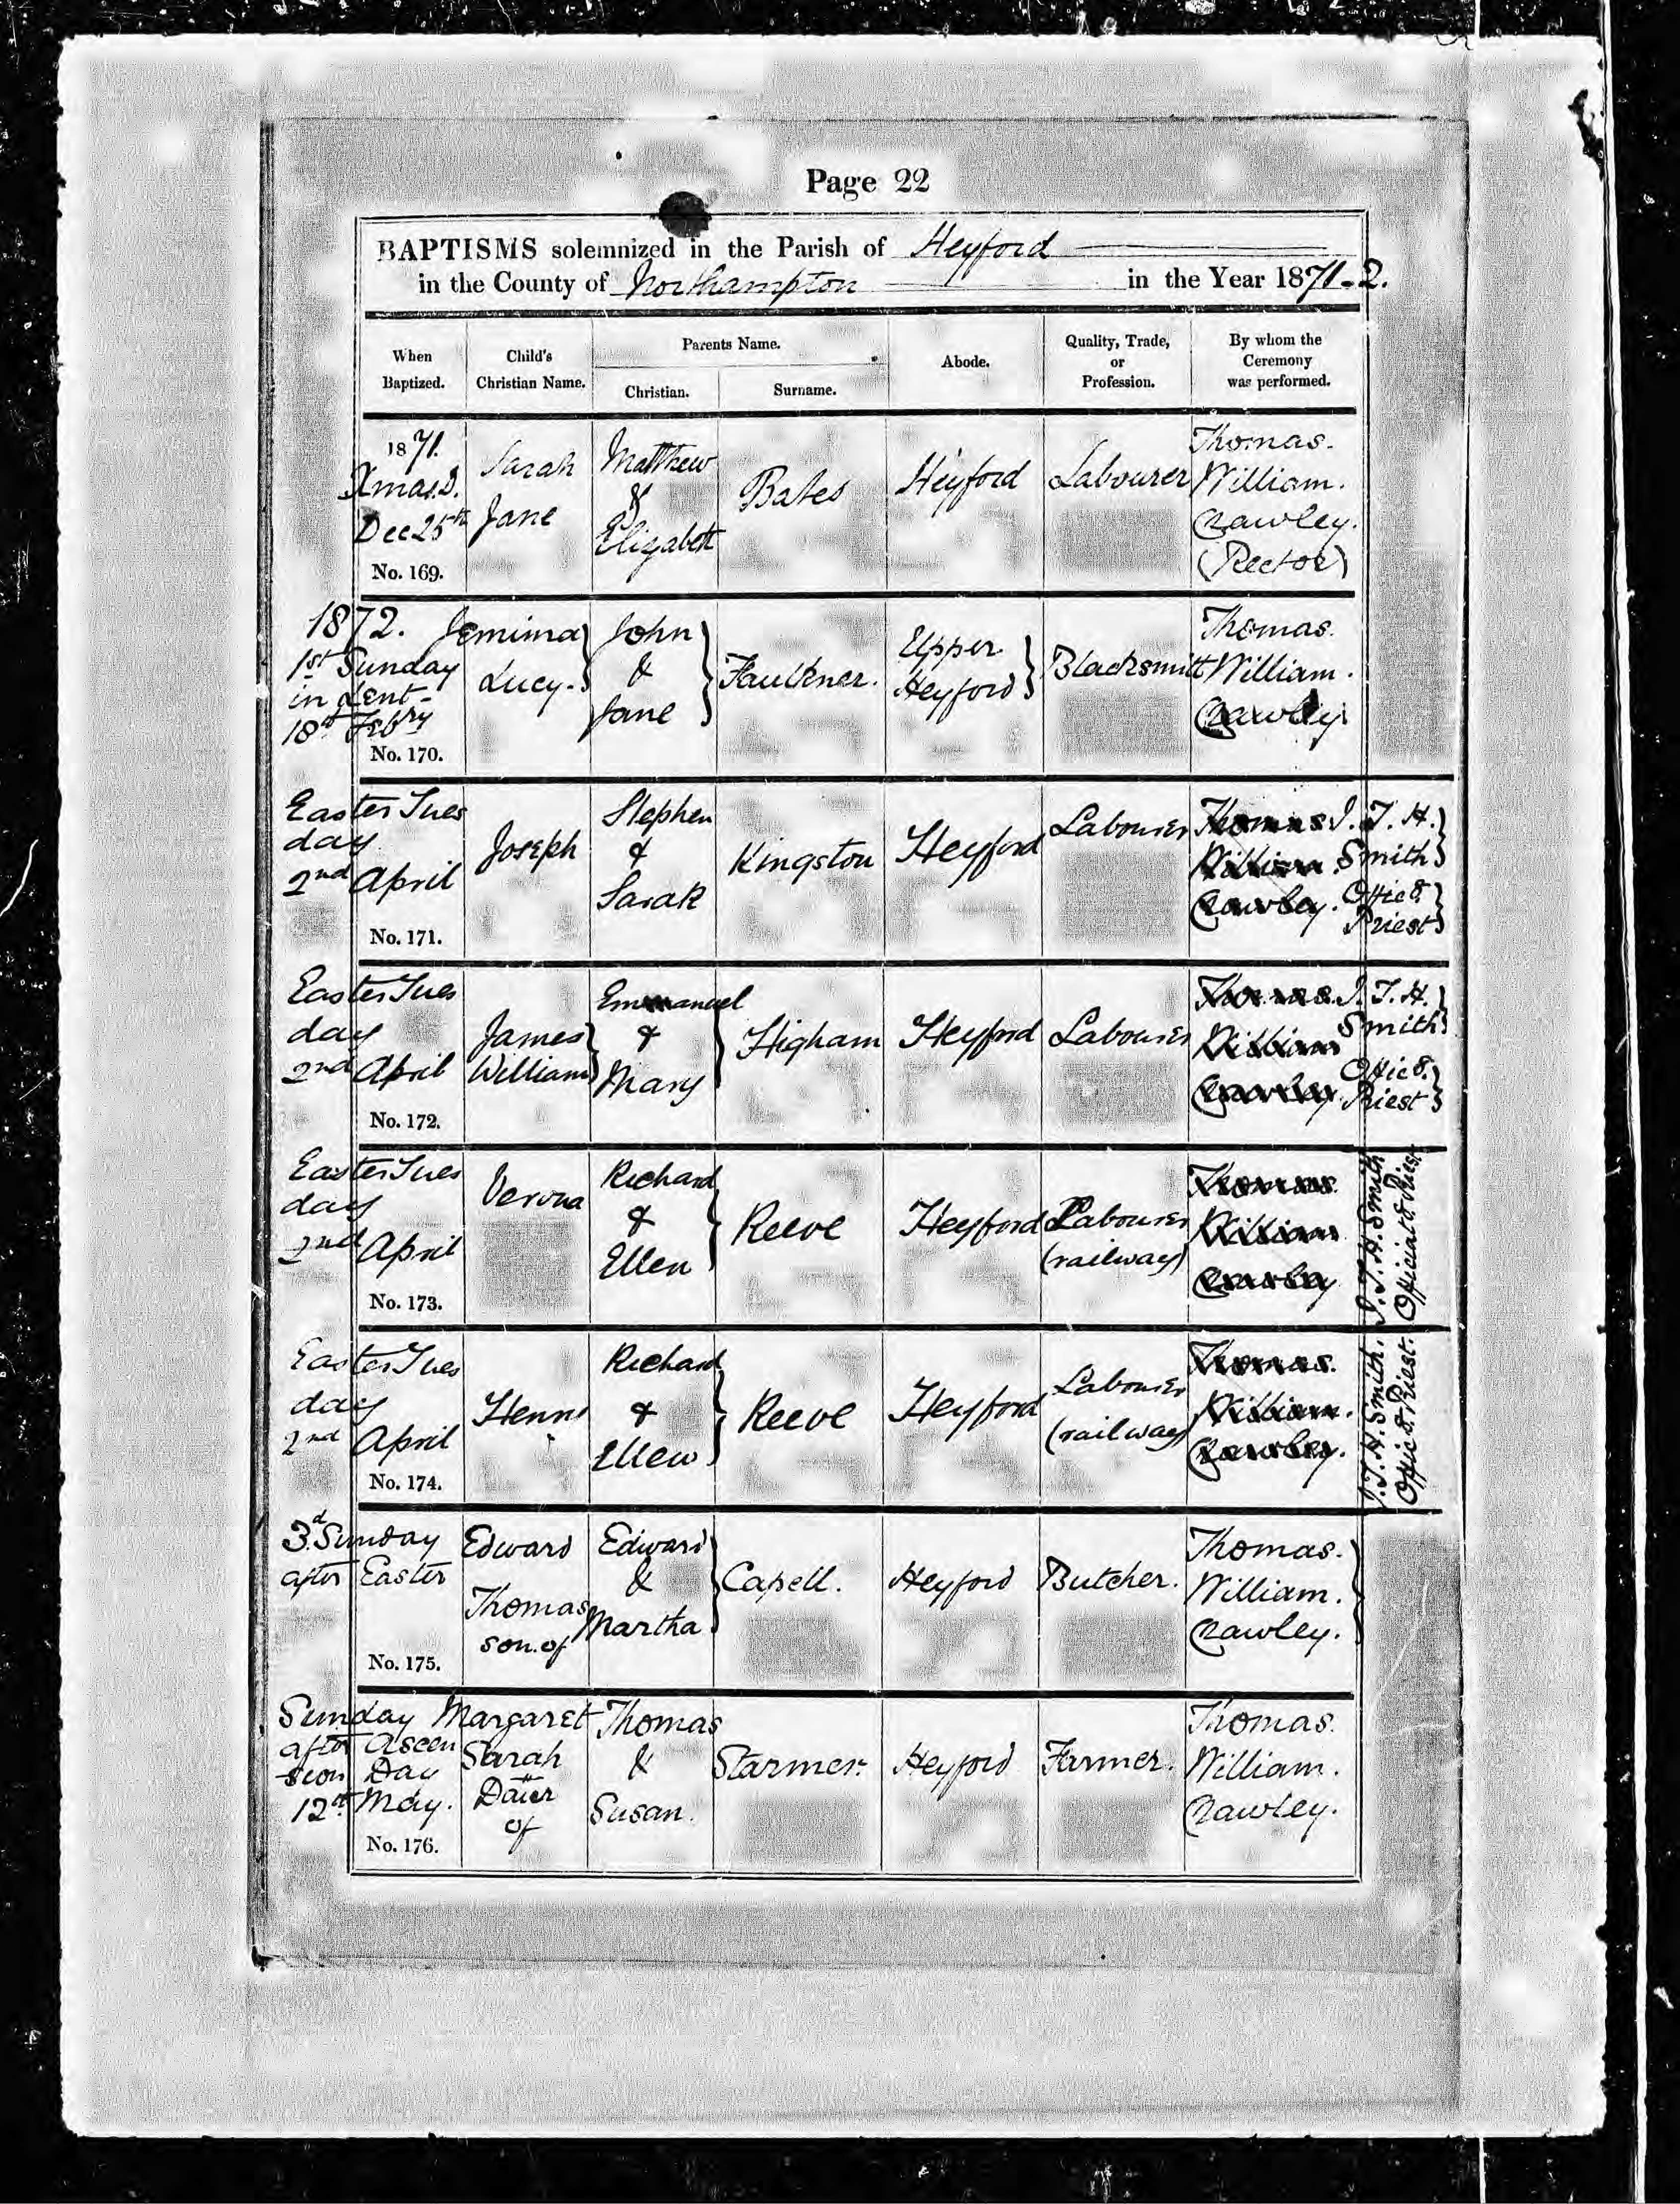 Page 22
BAPTISMS solemnized in the Parish of Heyford
in the County of Northampton in the Year 1871-2.
When Baptized.
Child's Christian Name.
Parents Name.
Christian.
Surname.
Abode.
Quality, Trade, or Profession.
By whom the Ceremony was performed.
1871.
Xmas.D.
Dec 25th
No. 169.
Sarah
Jane
Matthew
&
Elizabeth
Bates
Heyford
Labourer
Thomas.
William.
Crawley.
(Rector)
1872.
1st Sunday
in Lent-
18th Febry
No. 170.
Jemima
Lucy.
John
&
Jane
Faulkner.
Upper
Heyford
Blacksmith
Thomas.
William.
Crawley
Easter Tues
day
2nd April
No. 171.
Joseph
Stephen
&
Sarah
Kingston
Heyford
Labourer
Thomas
William.
Crawley.
J. T. H.
Smith
Offic8.
Priest
Easter Tues
day
2nd April
No. 172.
James
William
Emmanuel
&
Mary
Higham
Heyford
Labourer
Thomas.
William
Crawley
J. T. H.
Smith
Offic8.
Priest
Easter Tues
day
2nd April
No. 173.
Verona
Richard
&
Ellen
Reeve
Heyford
Labourer
(railway)
Thomas
William
Crawley
J. T. H. Smith
Priest
Easter Tues
day
2nd April
No. 174.
Richard
&
Ellen
Reeve
Heyford
Labourer
(railway)
Thomas.
William.
Crawley.
J. T. H. Smith.
Priest.
3.d Sunday
after Easter
No. 175.
Edward
Thomas
son. of
Edward
&
Martha
Capell.
Heyford
Butcher.
Thomas.
William.
Crawley.
Sunday
after Ascen
sion Day
12th May.
No. 176.
Margaret
Sarah
Dauer
of
Thomas
&
Susan.
Starmer.
Heyford
Farmer.
Thomas.
William.
Crawley.